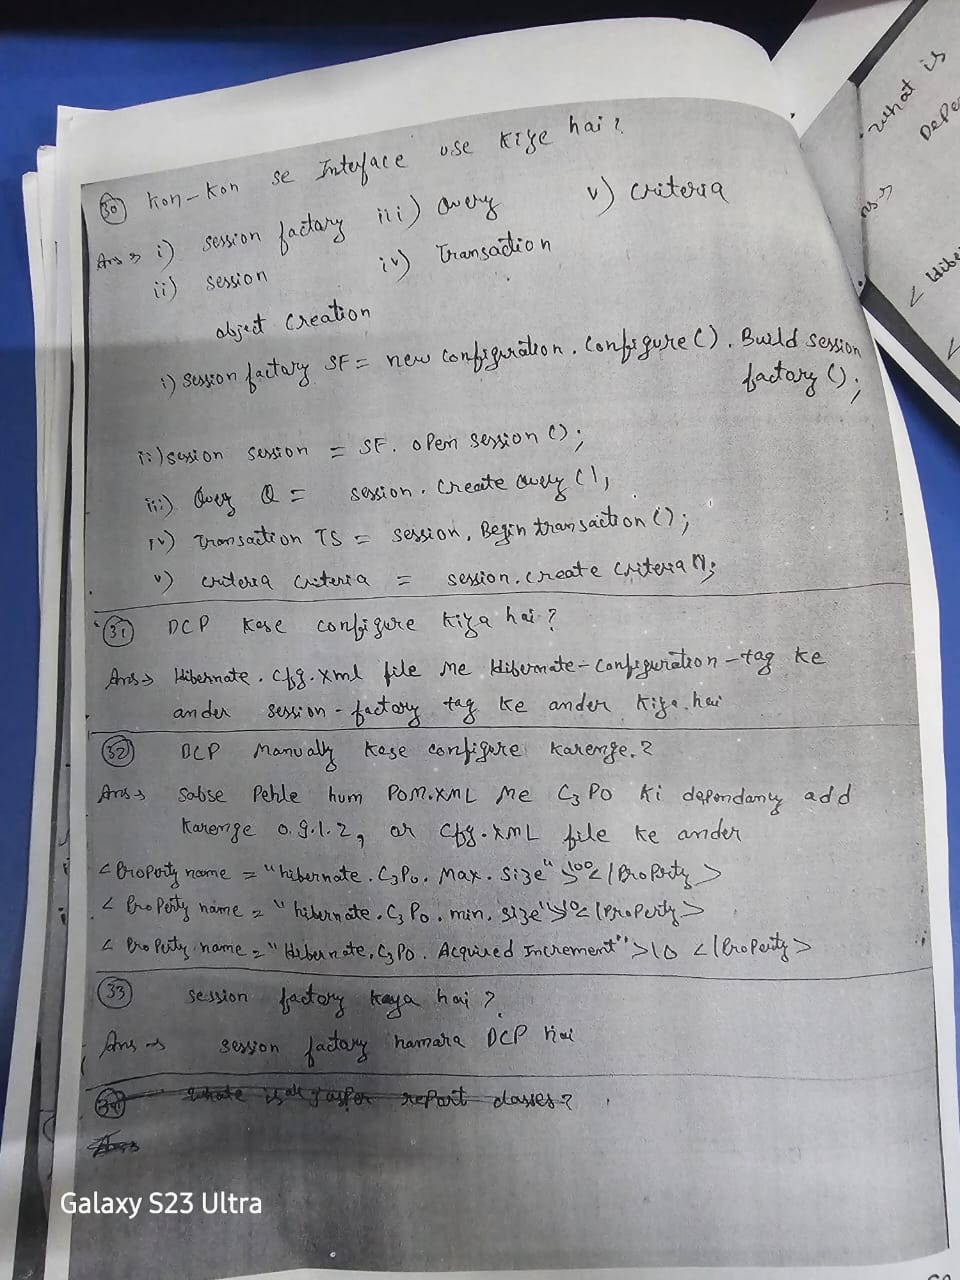 30 Kon-Kon se Interface use Kiye hai?
Ans → i) session factory iii) Query v) criteria
ii) session iv) Transaction
object Creation
i) Session factory SF = new configuration. Configure(). Build session
factory();
ii) session session = SF. open session();
iii) Query Q = session. Create Query();
iv) Transaction TS = session. Begin transaction();
v) criteria criteria = session. create criteria();
31 DCP Kase configure Kiya hai?
Ans → Hibernate. cfg. xml file me Hibernate-Configuration-tag ke
ander session-factory tag ke ander Kiya. hai
32 DCP Manually Kase configure Karenge.?
Ans → Sabse Pehle hum POM.XML Me C3PO Ki dependancy add
Karenge 0.9.1.2, or Cfg.XML file ke ander
<Property name = "hibernate. C3Po. Max. Size">100</Property>
< Property name = "hibernate. C3Po. min. size">10</Property>
< Property name = "Hibernate. C3PO. Acquired Increment">10 </Property>
33 session factory kaya hai?
Ans → session factory hamara DCP hai
34 report classes?
Ans
what is
Depe
ns →
< Hibe
Galaxy S23 Ultra